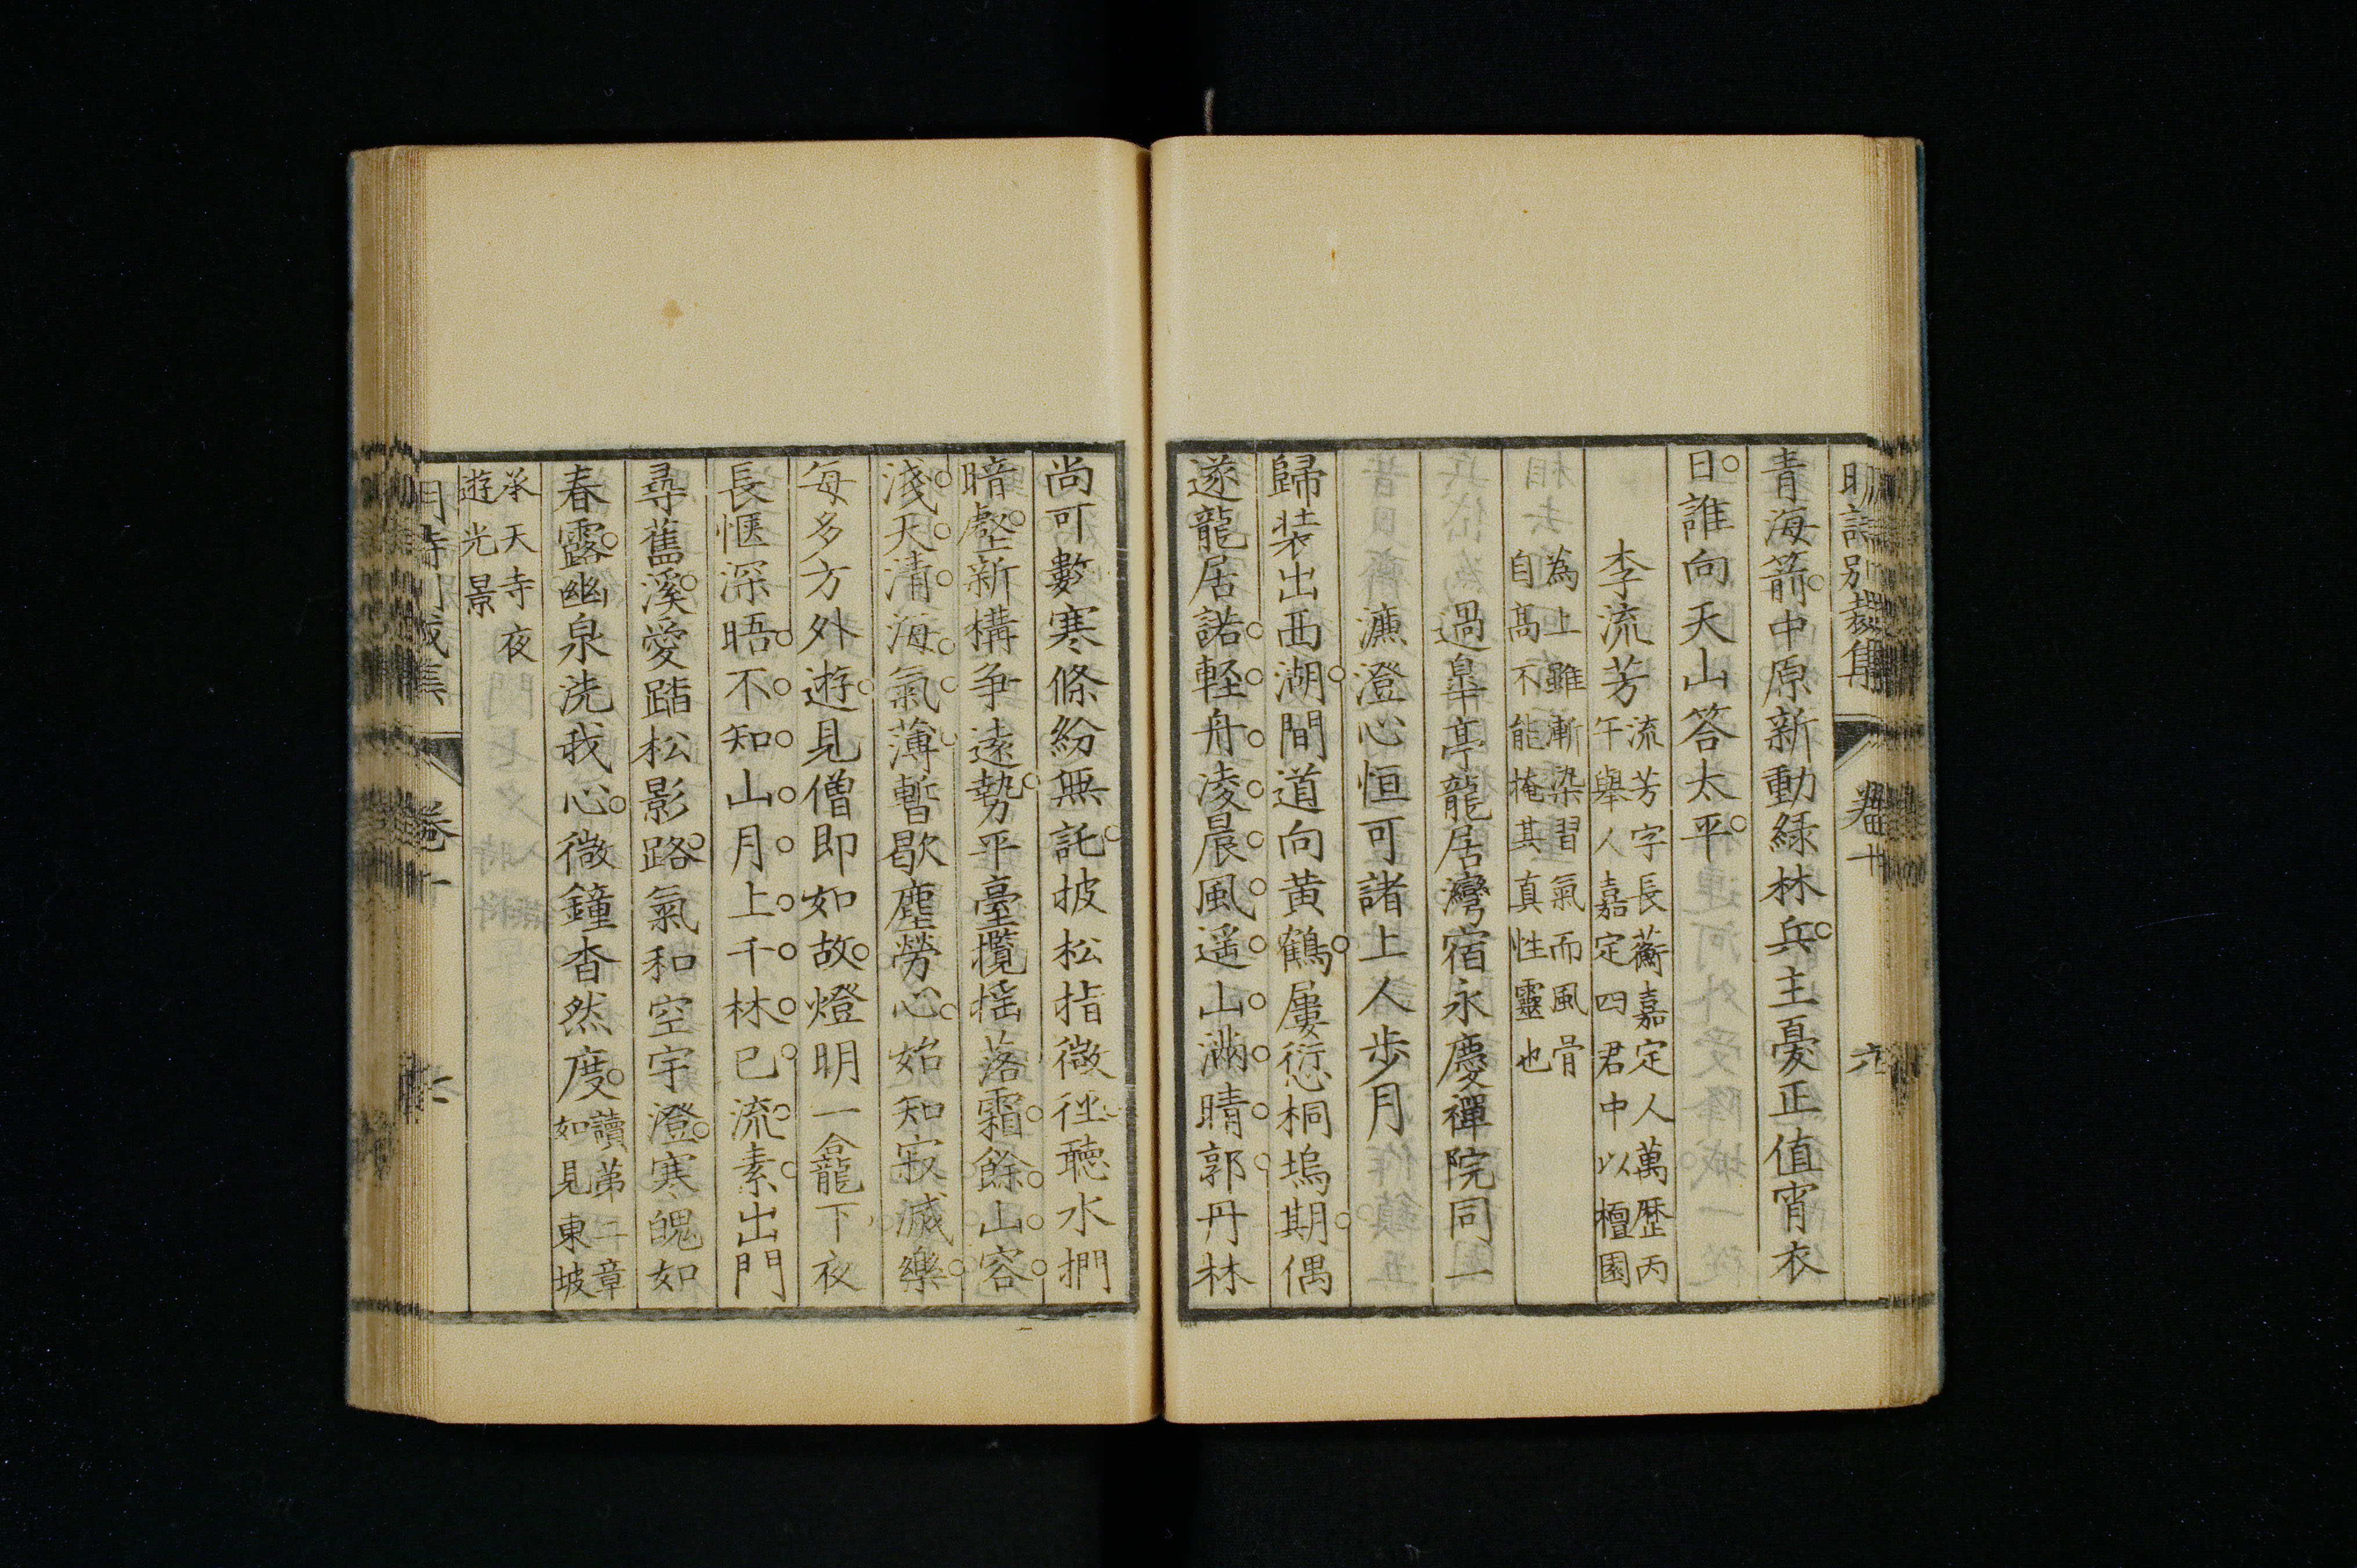 明詩別裁集 卷十 六
青海箭中原新動綠林兵主憂正值宵衣
日誰向天山答太平
李流芳
流芳字長蘅嘉定人萬歷丙
午舉人嘉定四君中以檀園
為上雖漸染習氣而風骨
自高不能掩其真性靈也
過皐亭龍居灣宿永慶禪院同一
濂澄心恒可諸上人步月
歸装出西湖間道向黃鶴屢愆桐塢期偶
遂龍居諾輕舟凌晨風遥山滿晴郭丹林
尚可數寒條紛無託披松指微徑聽水捫
暗壑新構争遠勢平臺攬揺落霜餘山容
淺天清海氣薄暫歇塵勞心始知寂滅樂
每多方外遊見僧即如故燈明一龕下夜
長愜深晤不知山月上千林已流素出門
尋舊溪愛踏松影路氣和空宇澄寒魄如
春露幽泉洗我心微鐘杳然度
讀苐二章
如見東坡
承天寺夜
遊光景